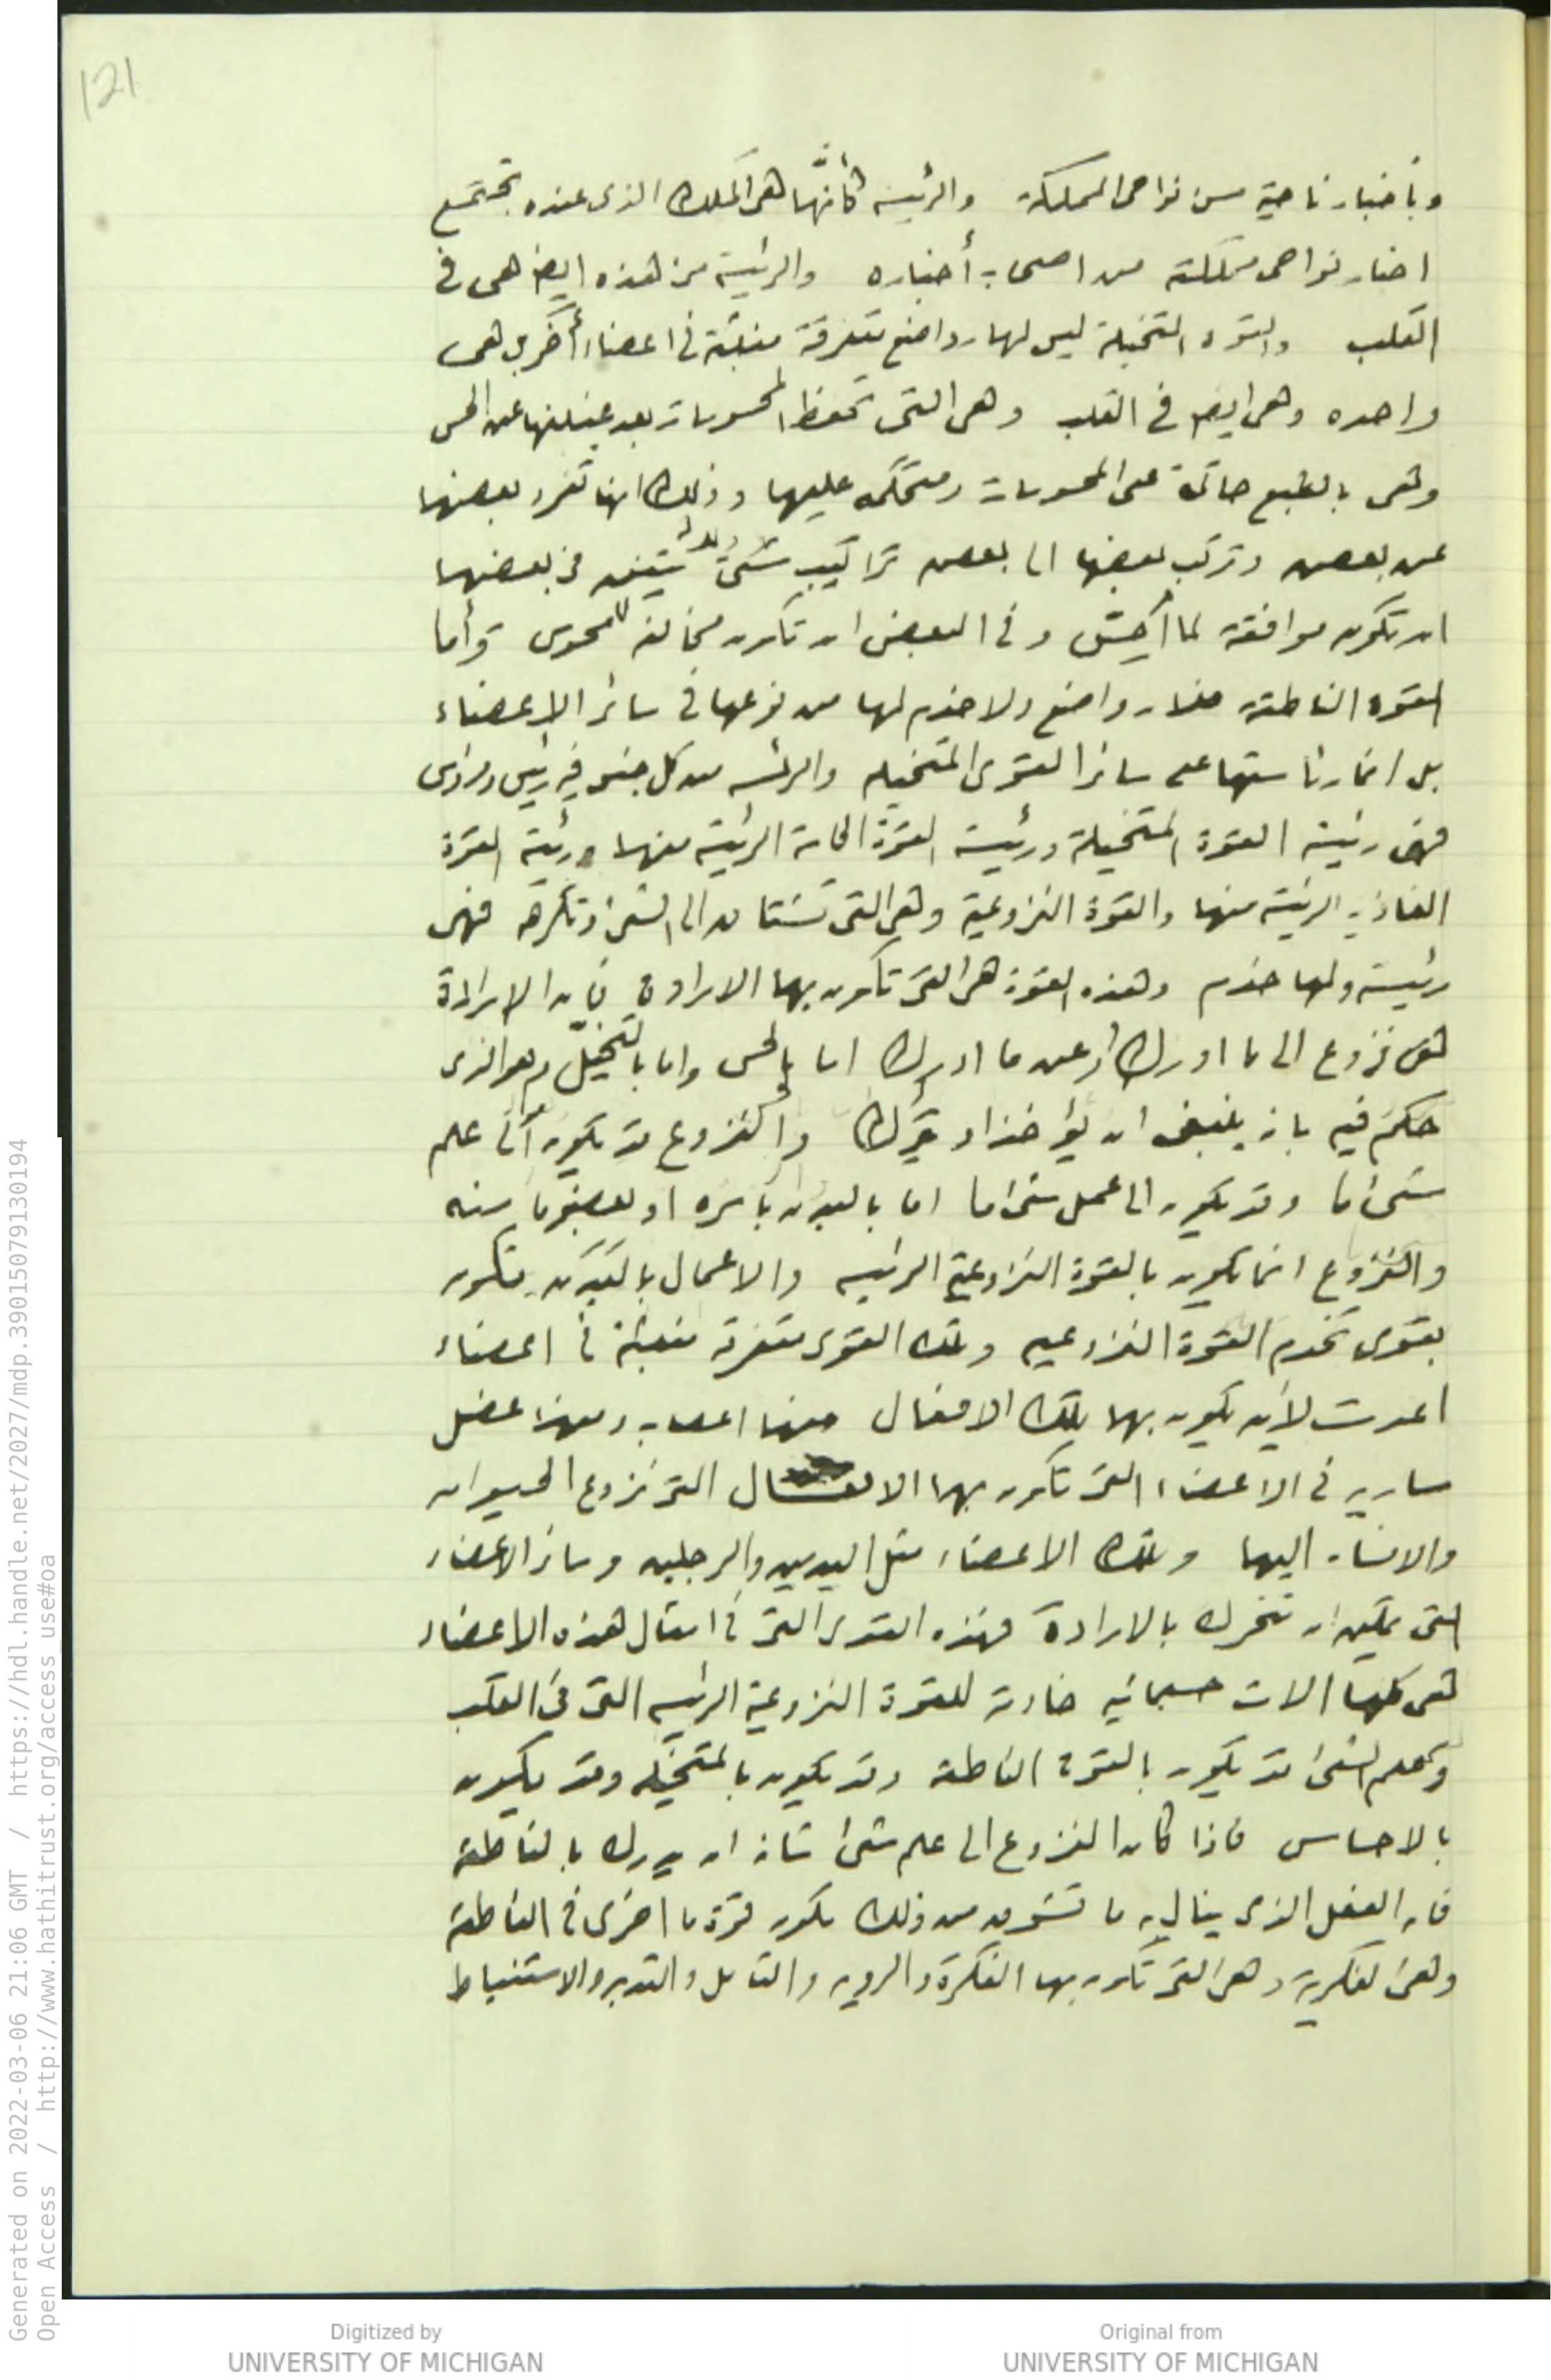 121
وبأخبار ناحية من نواحى المملكة والرئيسة كأنّها هى الملك الذى عنده تجتمع
اخبار نواحى مملكته من اصحاب أخباره والرئيسة من هذه ايضا هى فى
القلب والقوه المتخيلة ليس لها رواضع متفرقة منبثة فى اعضاء أخر بل هى
واحده وهى ايضا فى القلب وهى التى تحفظ المحسوسات بعد غيبتها عن الحس
وهى بالطبع حاكمة على المحسوسات ومتحكمه عليها وذلك انها تفرد بعضها
عن بعض وتركب بعضها الى بعض تراكيب يتفق فى بعضها
ان تكون موافقة لما أحس وفى البعض ان تكون مخالفة للمحسوس وأما
القوه الناطقة فلا رواضع ولا خدم لها من نوعها فى سائر الاعضاء
بل انما رئاستها على سائر القوى المتخيله والرئسه من كل جنس فيه رئيس ومرؤس
فهى رئيسة القوة المتخيلة ورئيسة القوة الحاسة الرئيسة منها ورئيسة القوة
الغاذية الرئيسة منها والقوة النزوعية وهى التى تشتاق الى الشئ وتكرهه فهى
رئيسة ولها خدم وهذه القوة هى التى تكون بها الارادة فان الارادة
هى نزوع الى ما ادرك أو عن ما ادرك اما بالحس واما بالتخيّل وهو الذى
حكم فيه بانه ينبغى ان يؤخذ او يترك والنزوع قد يكون الى علم
شئ ما وقد يكون الى عمل شئ ما اما بالبدن بأسره او بعضو ما منه
والنزوع انما يكون بالقوة النزوعية الرئيسه والاعمال بالبدن تكون
بقوى تخدم القوة النزوعيه وتلك القوى متفرقة منبثة فى اعضاء
اعدت لأن يكون بها تلك الافعال منها اعصاب ومنها عضل
سارية فى الاعضاء التى تكون بها الافعال التى نزوع الحيوان
والانسان اليها وتلك الاعضاء مثل اليدين والرجلين وسائر الاعضاء
التى يمكن ان تتحرك بالارادة فهذه القوى التى فى امثال هذه الاعضاء
هى كلها الات جسمانيه خادمة للقوة النزوعية الرئيسه التى فى القلب
وعلم الشئ قد يكون بالقوة الناطقة وقد يكون بالمتخيله وقد يكون
بالاحساس فاذا كان النزوع الى علم شئ شانه ان يدرك بالناطقة
فان الفعل الذى ينال به ما تشوق من ذلك يكون قوة ما اخرى فى الناطقة
وهى الفكرية وهى التى تكون بها الفكرة والرويه والتأمل والتدبر والاستنباط
Generated on 2022-03-06 21:06 GMT / https://hdl.handle.net/2027/mdp.39015079130194
Open Access / http://www.hathitrust.org/access_use#oa
Digitized by
UNIVERSITY OF MICHIGAN
Original from
UNIVERSITY OF MICHIGAN